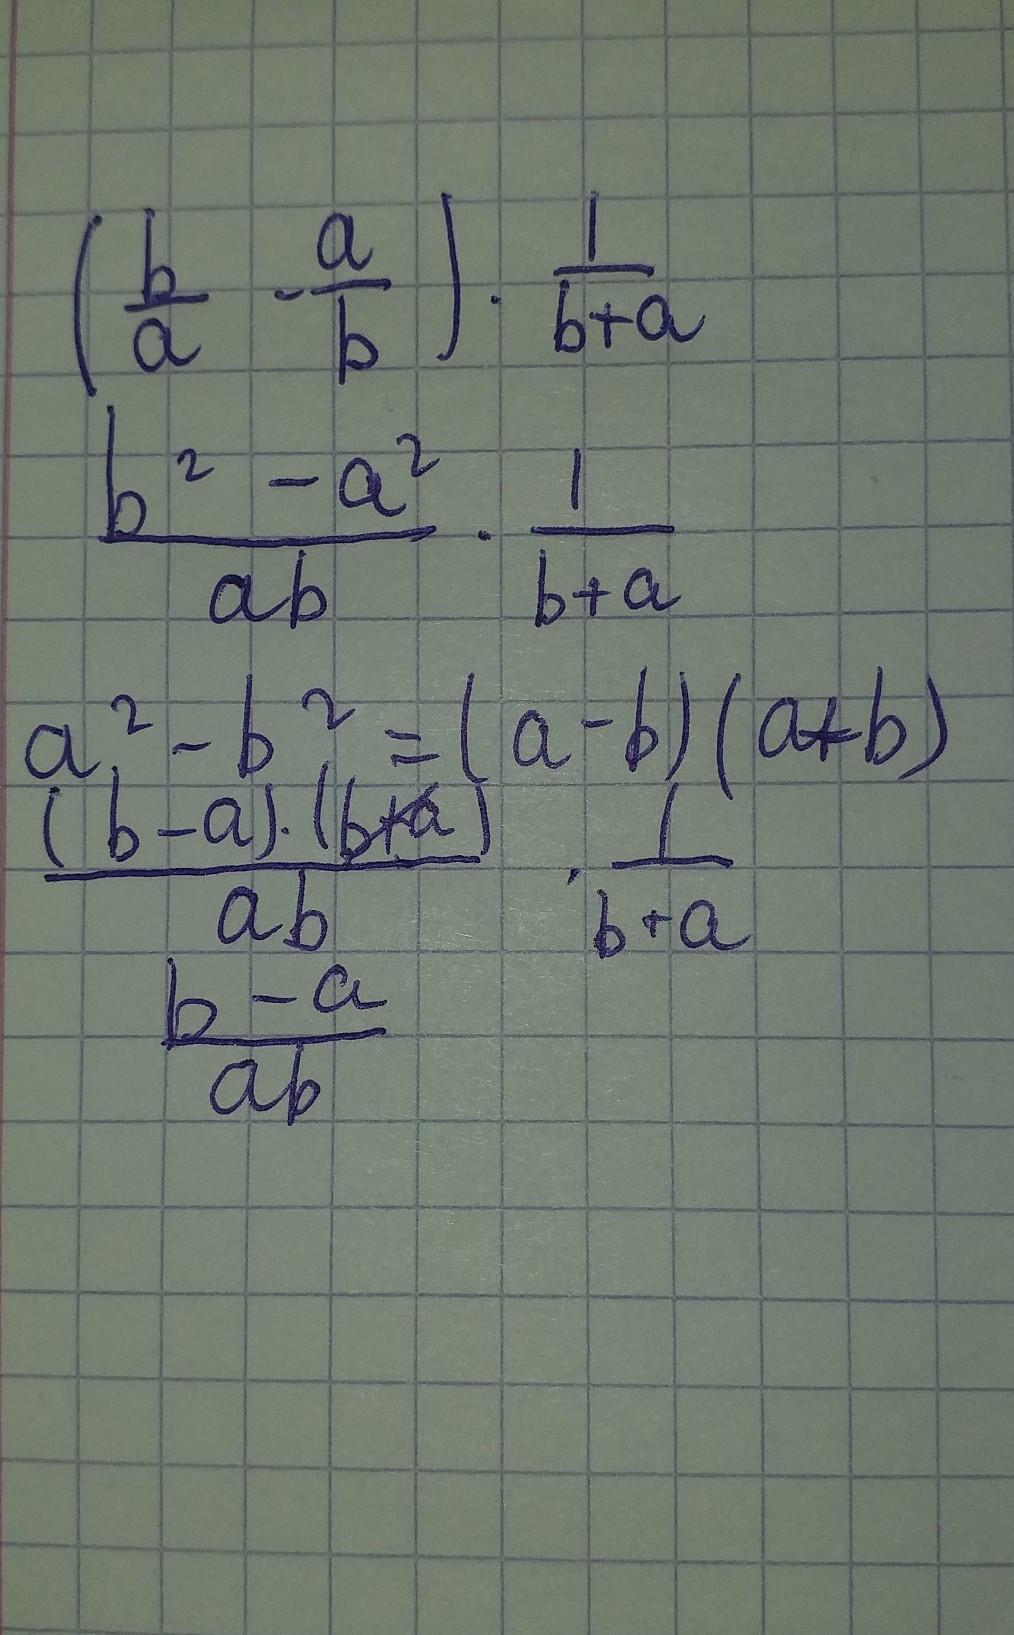 (b/a - a/b) · 1/(b+a)
(b² - a²)/(ab) · 1/(b+a)
a² - b² = (a - b)(a + b)
((b - a) · (b + a))/(ab) · 1/(b+a)
(b - a)/(ab)